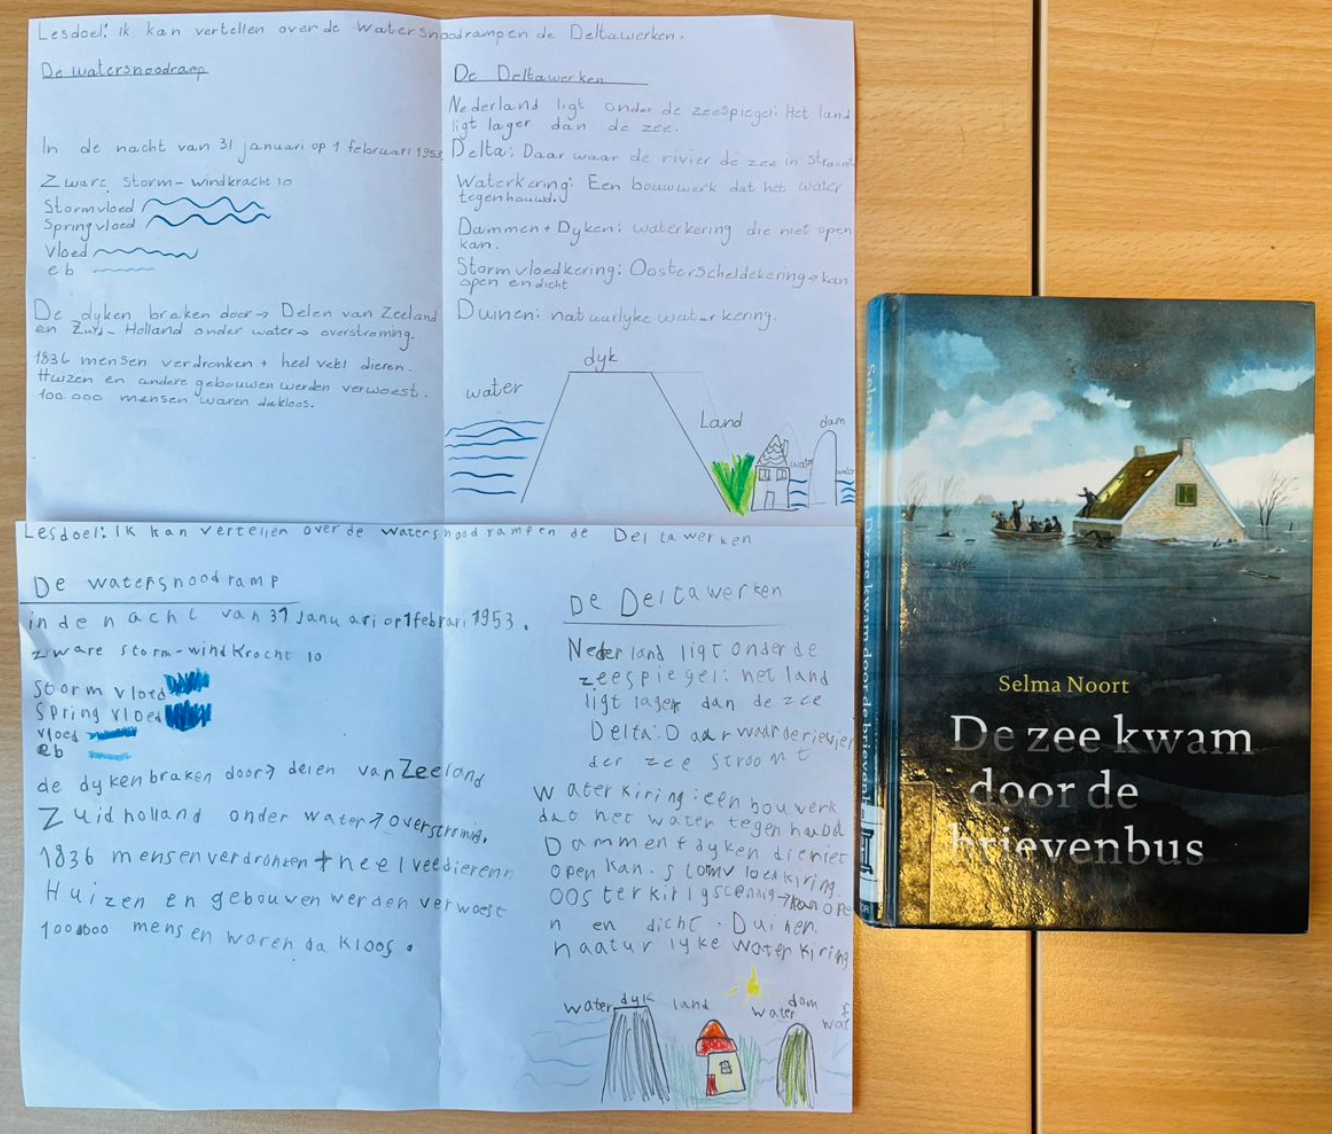 Lesdoel: Ik kan vertellen over de Watersnoodramp en de Deltawerken.
De watersnoodramp
In de nacht van 31 januari op 1 februari 1953
Zware storm-windkracht 10
Stormvloed
Springvloed
Vloed
eb
De dyken braken door→ Delen van Zeeland
en Zuid-Holland onder water→ overstroming.
1836 mensen verdronken + heel veel dieren.
Huizen en andere gebouwen werden verwoest.
100.000 mensen waren dakloos.
De Deltawerken
Nederland ligt onder de zeespiegel: Het land
ligt lager dan de zee.
Delta: Daar waar de rivier de zee in stroomt
Waterkering: Een bouwwerk dat het water
tegenhoudt.
Dammen + Dyken: waterkering die niet open
kan.
Stormvloedkering: Oosterscheldekering→ kan
open en dicht
Duinen: natuurlyke waterkering.
dyk
water
Land
dam
water
water
Lesdoel: Ik kan vertellen over de watersnoodramp en de Deltawerken
De watersnoodramp
in de nacht van 31 januari op 1 februari 1953.
zware storm-windkracht 10
Storm vloed
Spring vloed
vloed
eb
de dyken braken door→ delen van Zeeland
Zuid holland onder water→ overstroming.
1836 mensen verdronken + heel veel dieren
Huizen en gebouwen werden verwoest
100.000 mensen waren dakloos.
De Deltawerken
Nederland ligt onder de
zeespiegel: het land
ligt lager dan de zee
Delta: Daar waar de rievier
der zee stroomt
Waterkiring: een bouwerk
dat het water tegen houd
Dammen + dyken die niet
open kan. stomvloedkiring
n en dicht. Duinen.
naatuurlyke waterkiring
water dyk land
dam
water
Selma Noort
De zee kwam
door de
brievenbus
Selma Noort De zee kwam door de brievenbus